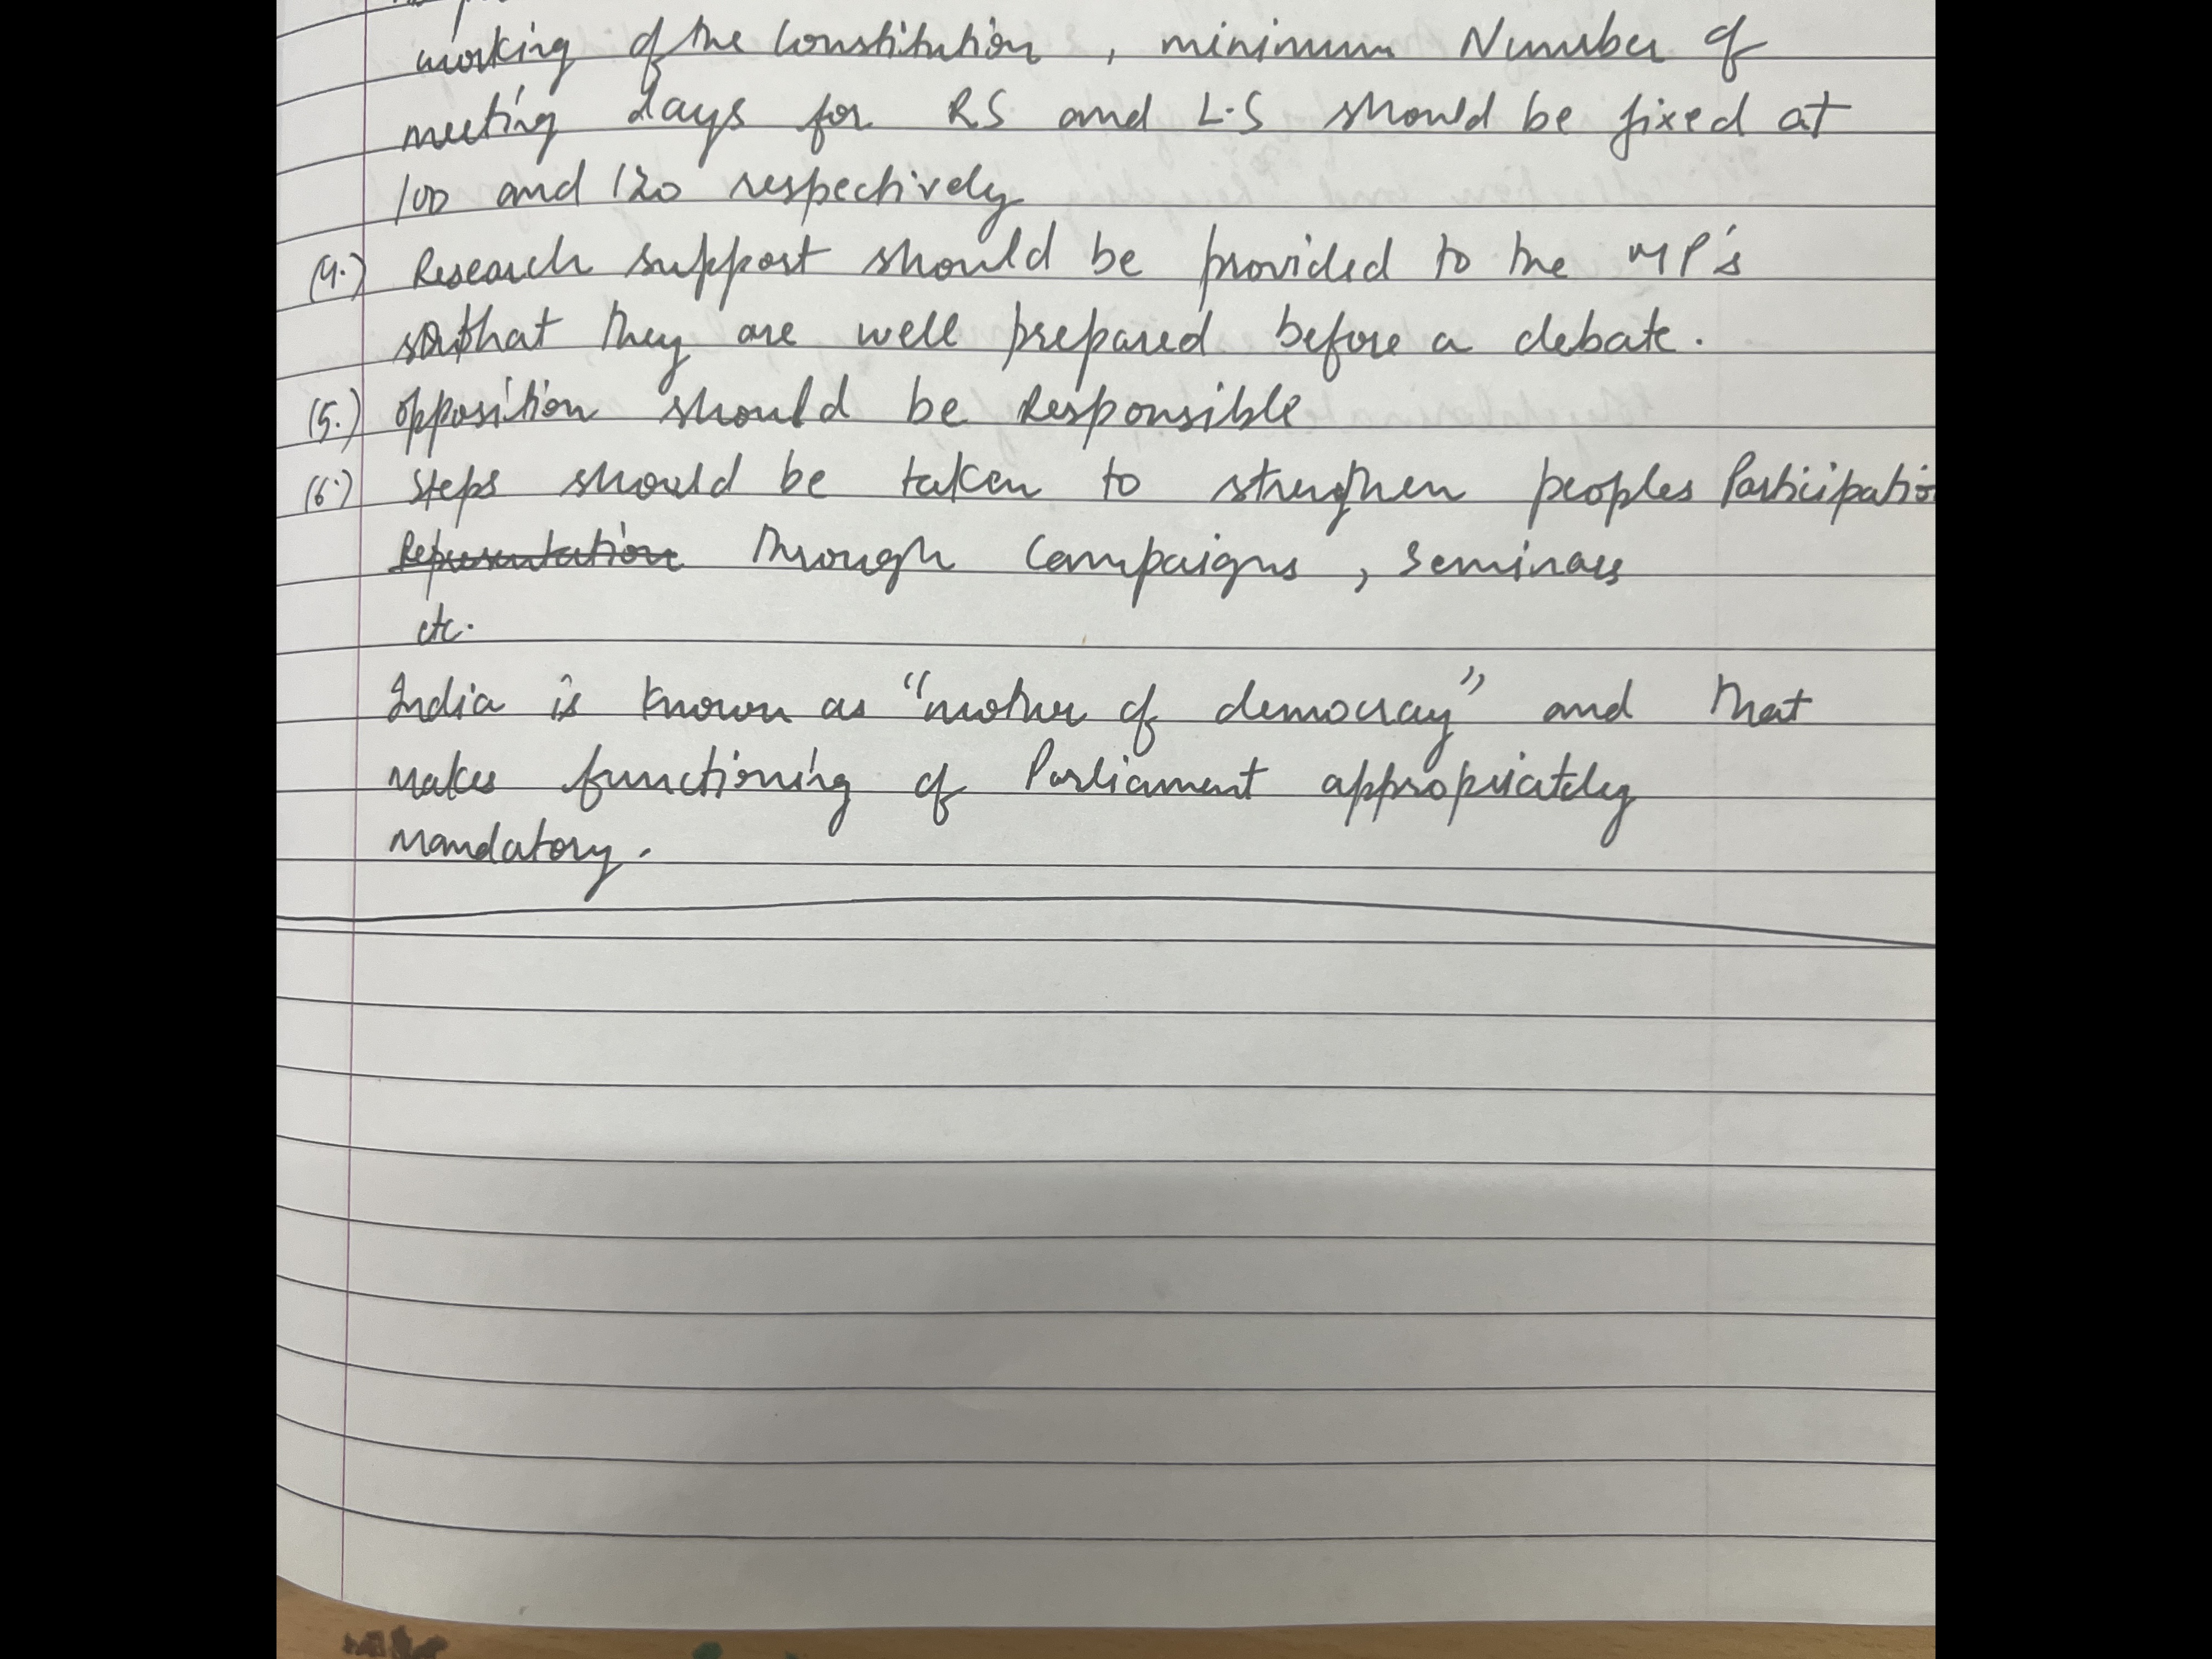 working of the Constitution, minimum Number of
meeting days for RS and L.S should be fixed at
100 and 120 respectively
(4.) Research support should be provided to the MP's
so that they are well prepared before a debate.
(5.) opposition should be Responsible
(6.) Steps should be taken to strenghen peoples Participatio
Representation through Campaigns, Seminars
etc.
India is known as "mother of democracy" and that
makes functioning of Parliament appropriately
Mandatory.